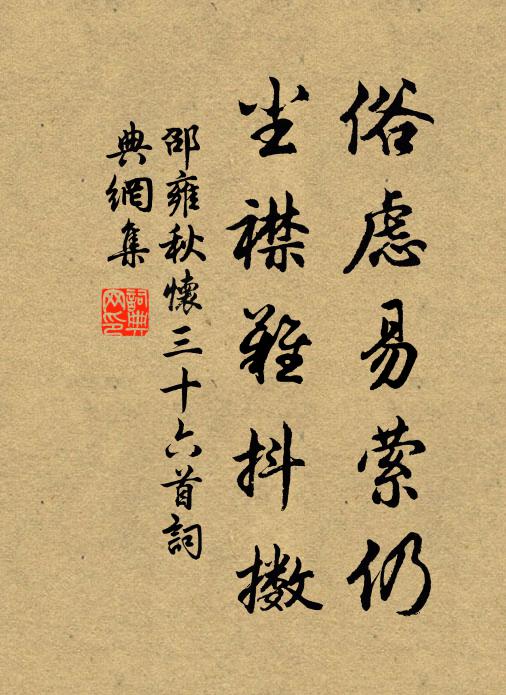 俗慮易萦仍
尘襟難抖擞
邵雍秋懷三十六首詞
典網集
詞典
网印